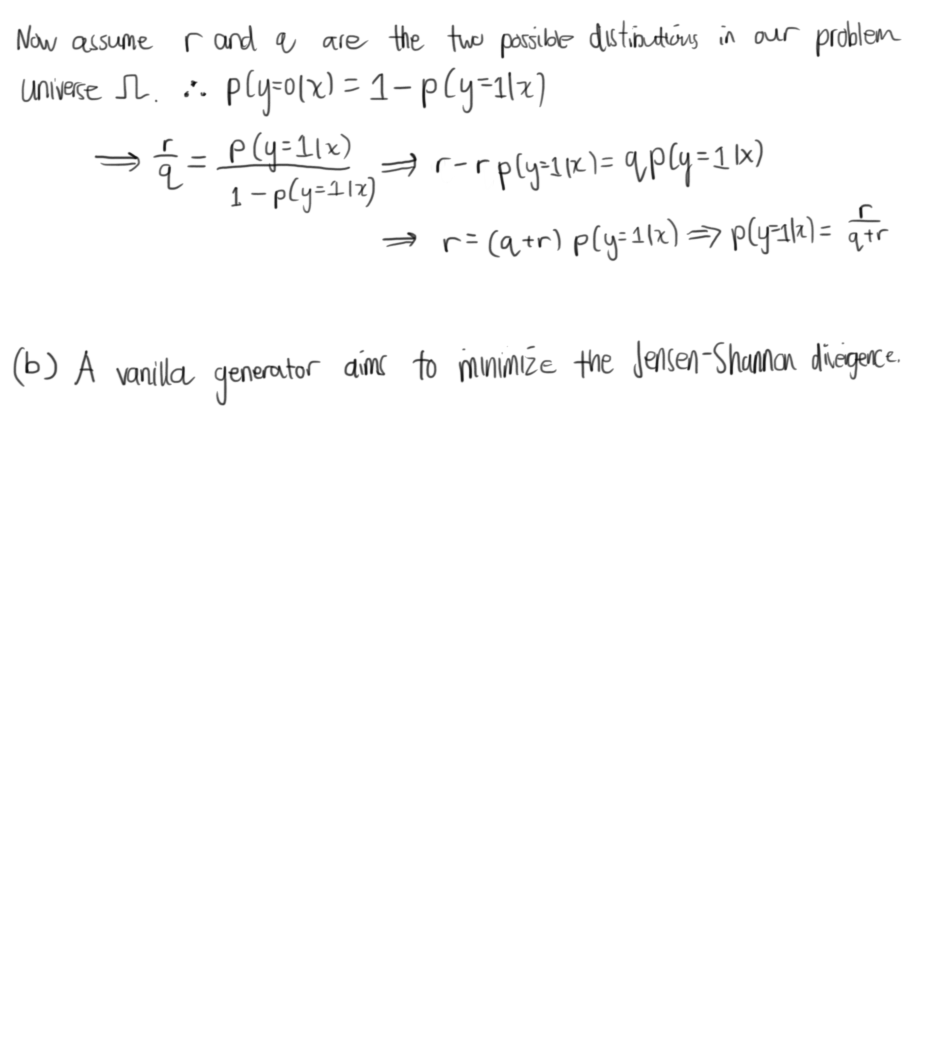 Now assume r and q are the two possible distributions in our problem
universe Ω. ∴ p(y=0|x) = 1 - p(y=1|x)
⟹ r/q = p(y=1|x) / (1 - p(y=1|x)) ⟹ r - r p(y=1|x) = q p(y=1|x)
⟹ r = (q+r) p(y=1|x) ⟹ p(y=1|x) = r/(q+r)
(b) A vanilla generator aims to minimize the Jensen-Shannon divergence.